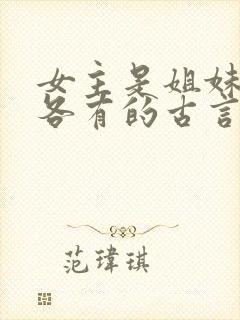 女主是姐妹
各有的古言
范瑋琪